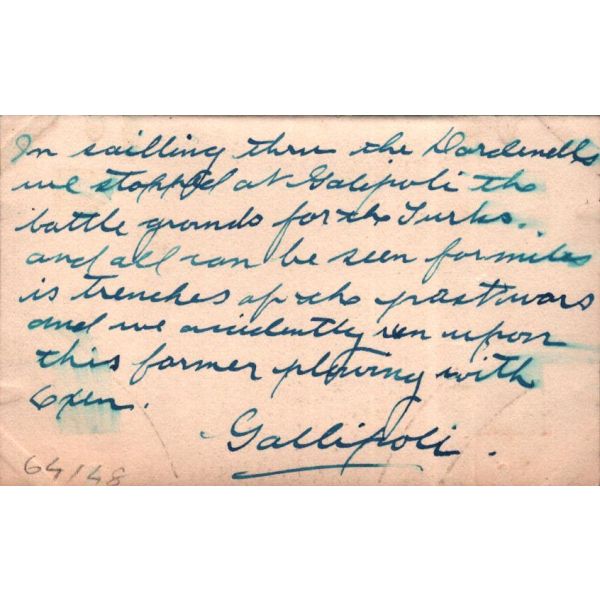 In sailling thru the Dardenells
we stopped at Galipoli the
battle grounds for the Turks.
and all can be seen for miles
is trenches of the past wars
and we accidently run upon
this farmer plowing with
Oxen.
Gallipoli.
64/48